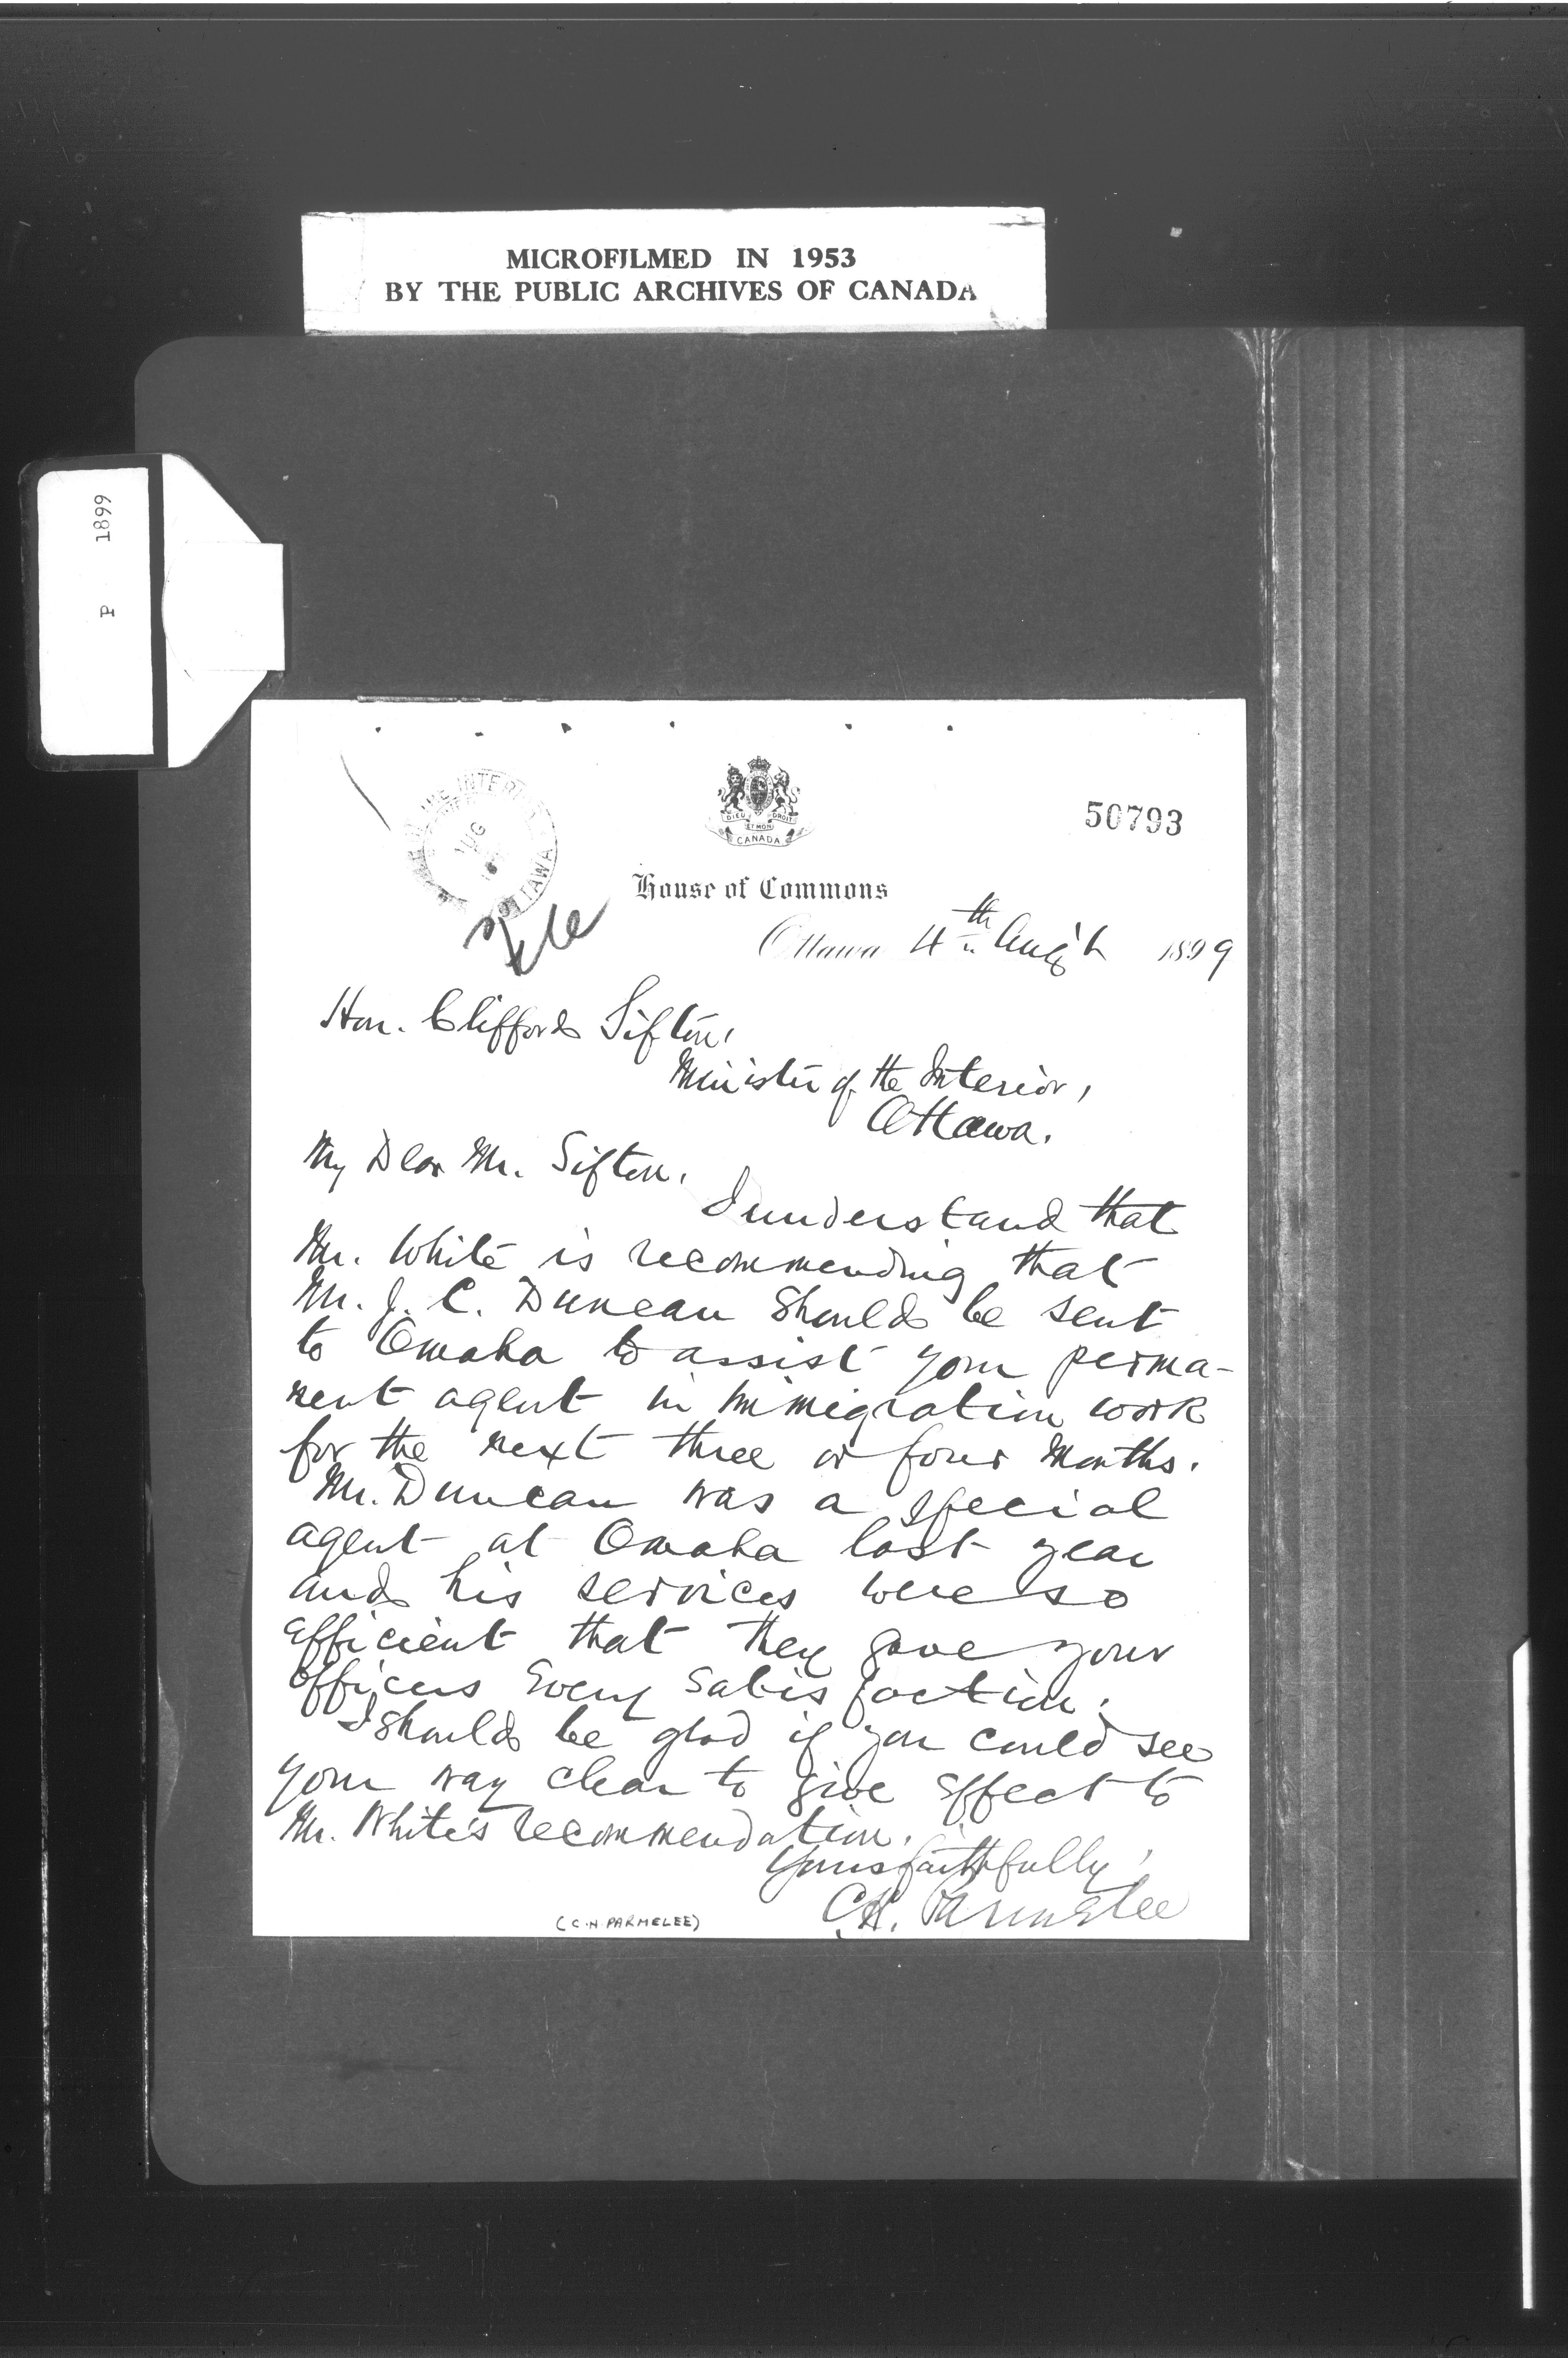 MICROFILMED IN 1953
BY THE PUBLIC ARCHIVES OF CANADA
P 1899
DIEU ET MON DROIT
CANADA
50793
House of Commons
Ottawa 4th Aug't 1899
Hon. Clifford Sifton,
Minister of the Interior,
Ottawa.
My Dear Mr. Sifton,
I understand that
Mr. White is recommending that
Mr. J. C. Duncan should be sent
to Omaha to assist your perma-
nent agent in immigration work
for the next three or four months.
Mr. Duncan was a special
agent at Omaha last year
and his services were so
efficient that they gave your
officers every satisfaction.
I should be glad if you could see
your way clear to give effect to
Mr. White's recommendation.
Yours faithfully,
C.H. Parmelee
(C.H. PARMELEE)